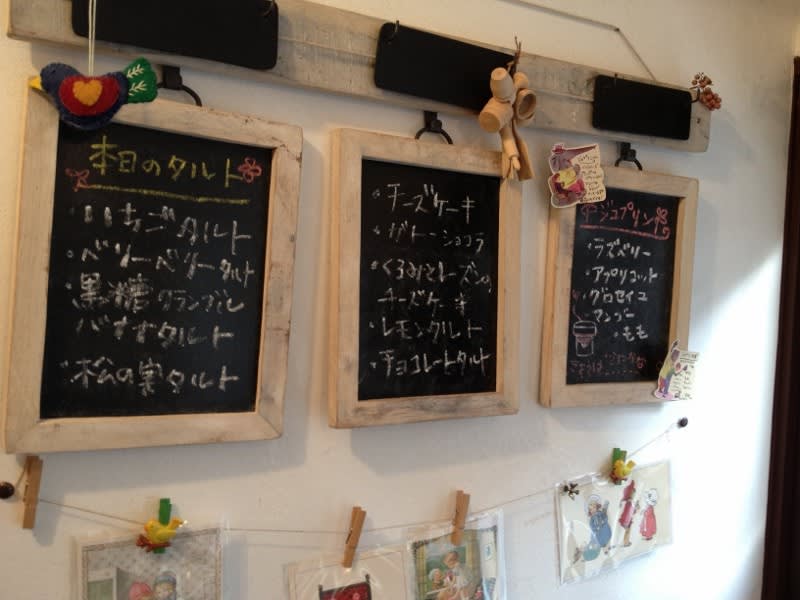 本日のタルト
・いちごタルト
・ベリーベリータルト
・黒糖クランブル
バナナタルト
・松の実タルト
・チーズケーキ
・ガトーショコラ
・くるみとレーズンの
チーズケーキ
・レモンタルト
・チョコレートタルト
・ラズベリー
・アプリコット
・グロセイユ
・マンゴー
・もも